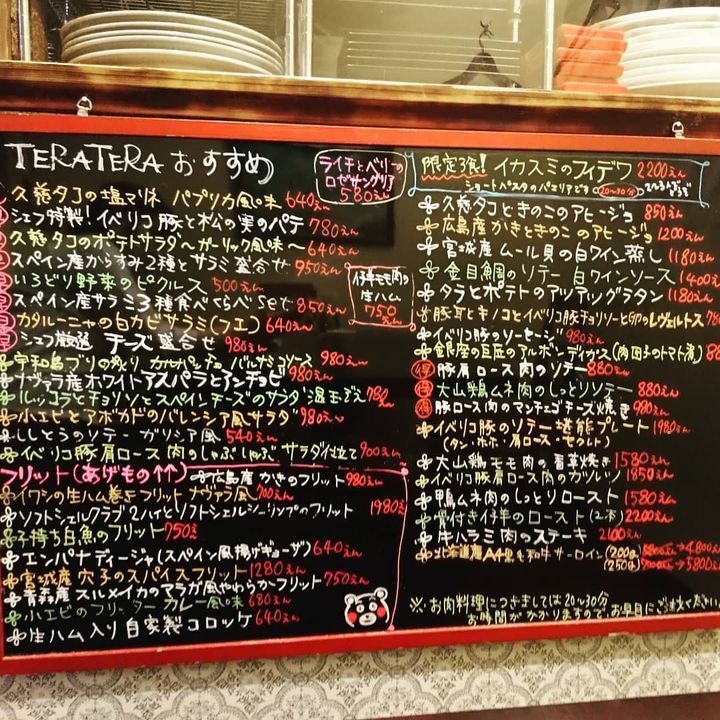 TERATERA おすすめ
ライチとベリーの
ロゼサングリア
580えん
久慈タコの塩マリネ パプリカ風味 640えん
シェフ特製!イベリコ豚と松の実のパテ 780えん
久慈タコのポテトサラダ〜ガーリック風味〜 640えん
スペイン産からすみ2種とサラミ盛合せ 950えん
いろどり野菜のピクルス 500えん
スペイン産サラミ3種食べくらべset 850えん
カタルーニャの白カビサラミ(フエ) 640えん
シェフ厳選 チーズ盛合せ 980えん
仔羊モモ肉の
生ハム
750
えん
宇和島ブリの炙り カルパッチョ バルサミコソース 980えん
ナヴァラ産ホワイトアスパラとアンチョビ 980えん
ルッコラとチョリソとスペインチーズのサラダ 温玉ぞえ 780えん
小エビとアボカドのバレンシア風サラダ 980えん
ししとうのソテー ガリシア風 540えん
イベリコ豚肩ロース肉のしゃぶしゃぶ サラダ仕立て 900えん
フリット(あげもの↑↑)
広島産 かきのフリット 980えん
イワシの生ハム巻きフリット ナヴァラ風 700えん
ソフトシェルクラブ2ハイとソフトシェルシュリンプのフリット 1980えん
子持ち白魚のフリット 750え
エンパナディージャ(スペイン風揚げギョーザ) 640えん
宮城産 穴子のスパイスフリット 1280えん
青森産 スルメイカのアラガ風やわらかフリット 750えん
小エビのフリッター カレー風味 680えん
生ハム入り自家製コロッケ 640えん
限定3食! イカスミのフィデワ 2200えん
ショートパスタのパエリアです 20〜30分
久慈タコときのこのアヒージョ 850えん
広島産かきときのこのアヒージョ 1200えん
宮城産ムール貝の白ワイン蒸し 1180えん
金目鯛のソテー 白ワインソース 1400え
タラとポテトのアツアツグラタン 1180え
豚耳とキノコとイベリコ豚チョリソーと卵のレヴェルトス 78
イベリコ豚のソーセージ 980えん
金銀座の巨匠のアルボンディガス(肉団子のトマト煮) 88
得 豚肩ロース肉のソテー 880えん
得 大山鶏ムネ肉のしっとりソテー 880えん
得 豚ロース肉のマンチェゴチーズ焼き 980えん
イベリコ豚のソテー堪能プレート 1980えん
(タン・ホホ・肩ロース・セクレト)
大山鶏モモ肉の香草焼き 1580えん
イベリコ豚肩ロース肉のカツレツ 1850えん
鴨ムネ肉のしっとりロースト 1580えん
骨付き仔羊のロースト(2本) 2200えん
牛ハラミ肉のステーキ 2100えん
北海道産A4黒毛和牛サーロイン(200g) →4800え
(250g) →5800え
※・お肉料理につきましては20〜30分
お時間がかかりますので、お早目にご注文ください